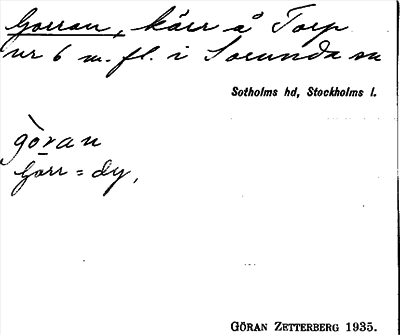 Gorran, kärr å Torp
nr 6 m. fl. i Sorunda sn
Sotholms hd, Stockholms l.
gòran
Gorr = dy,
GÖRAN ZETTERBERG 1935.